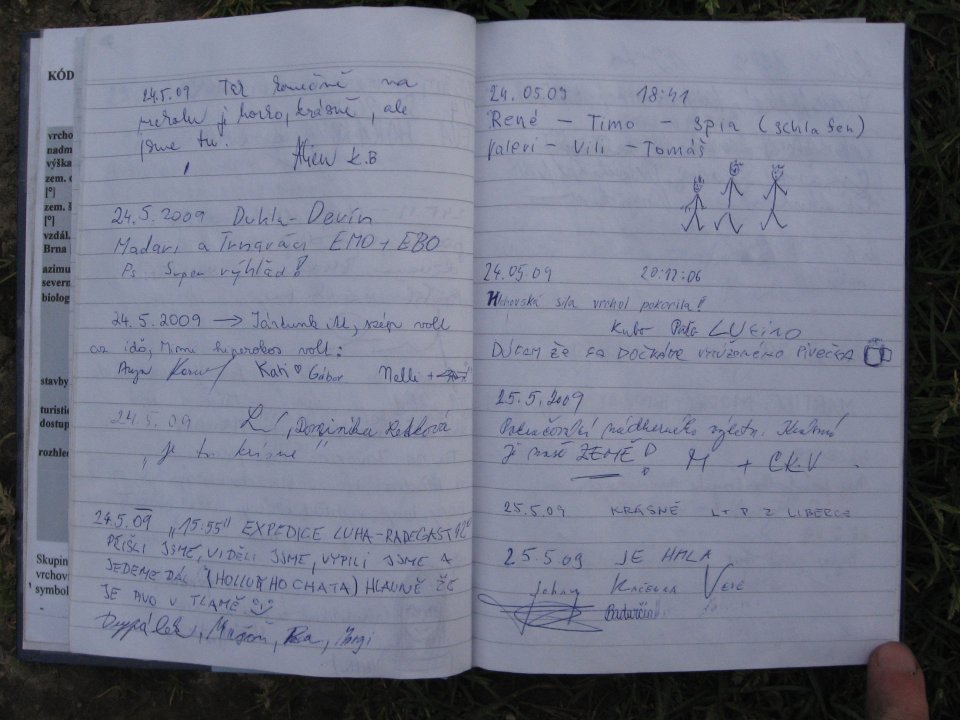 KÓD
vrcho
nadm
výška
zem. d
[°]
zem. š
[°]
vzdál.
Brna
azimu
severn
biolog
stavby
turistic
dostup
rozhled
Skupin
vrchov
symbol
24.5.09 na
je horko, krásně, ale
jsme tu.
Alien K.B
24.5.2009 Dukla-Devín
Madari a Trnaváci EMO + EBO
Ps. Super výhľad!
24.5.2009 → Jártunk itt, szép volt
az idő, Minmi hiperokos volt:
Kati ♥ Gábor Nelli +
24.5.09 , Dominika Redková
"je tu krásně"
24.5.09 "15:55" EXPEDICE LUHA-RADEGAST
PŘIŠLI JSME, VIDĚLI JSME, VYPILI JSME A
JEDEME DÁL (HOLLUB HO CHATA) HLAVNĚ ŽE
JE PIVO V TLAMĚ.
24.05.09 18:41
René - Timo - spia (schlafen)
Valeri - Vili - Tomáš
24.05.09 20:12:06
síla vrchol pokorila!
Kubo Paťo LUCINO
DÚFAM ŽE SA DOČKÁME VYTÚŽENÉHO PIVEČKA
25.5.2009
Pokračování nádherného výletu. Krásná
je naše ZEMĚ! M + CKV.
25.5.09 KRÁSNĚ L+P Z LIBERCE
25.5.09 JE HMLA
Johny